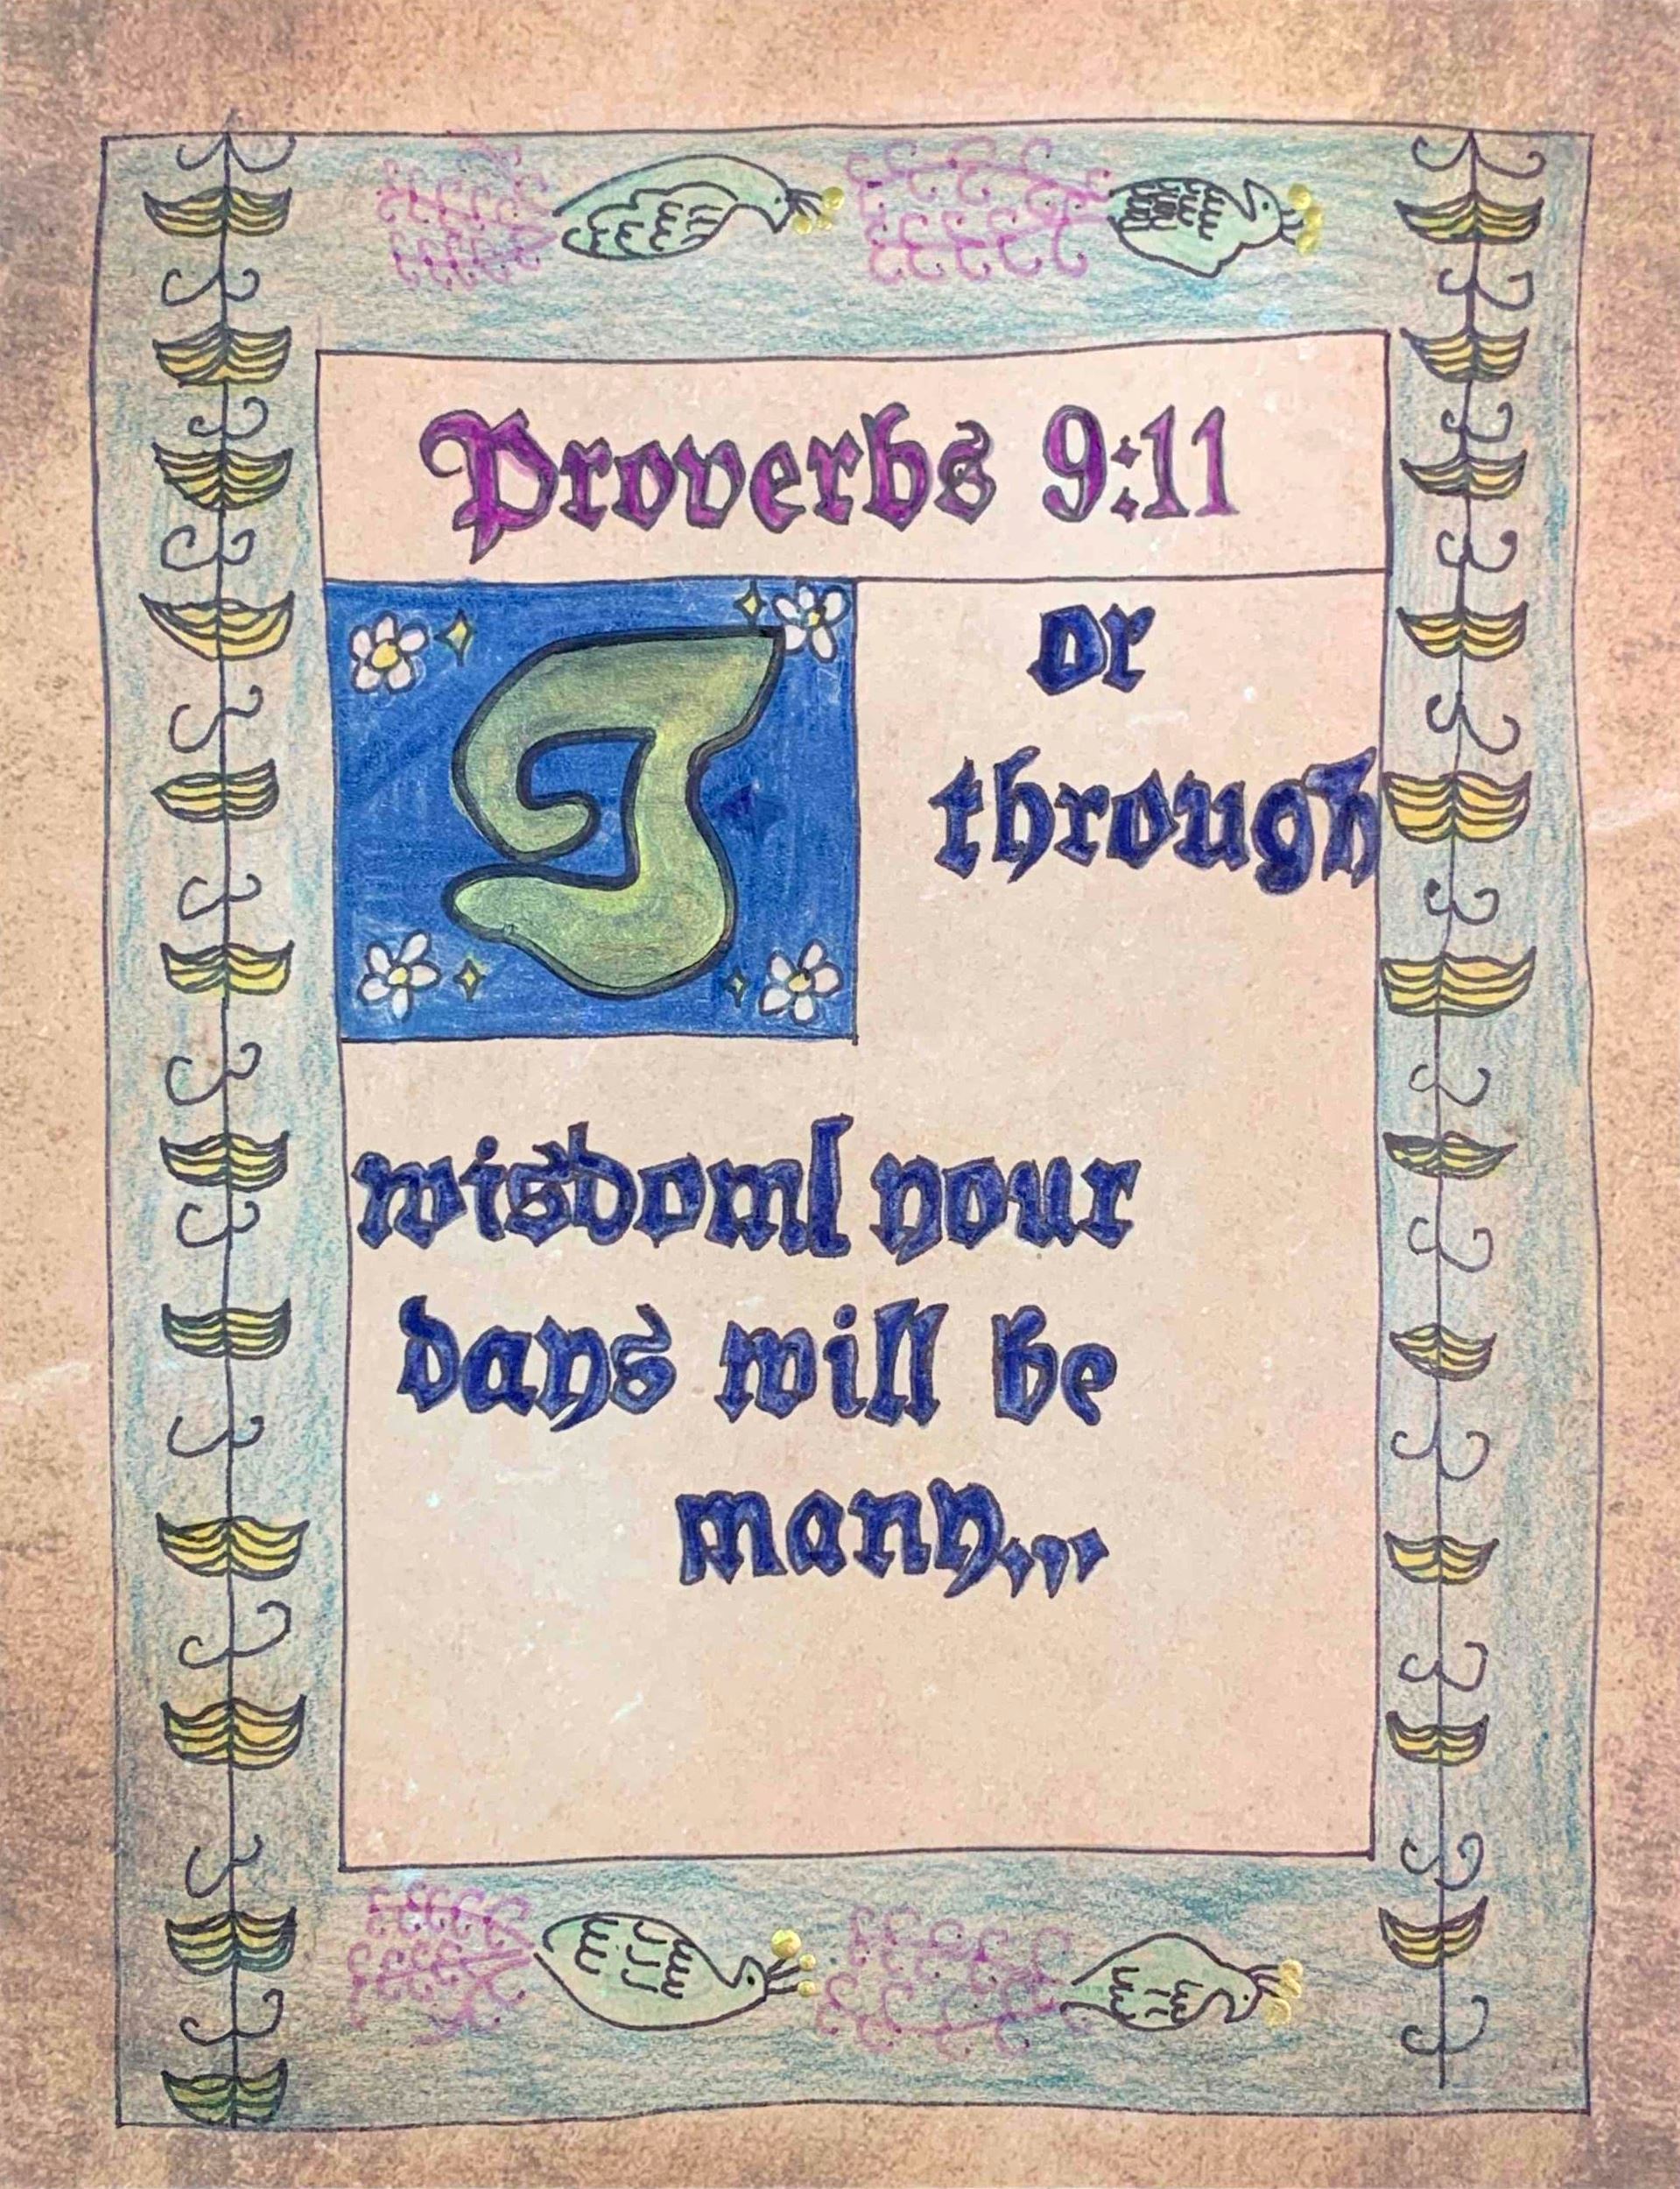 Proverbs 9:11
For
through
wisdoml your
days will be
many,,,